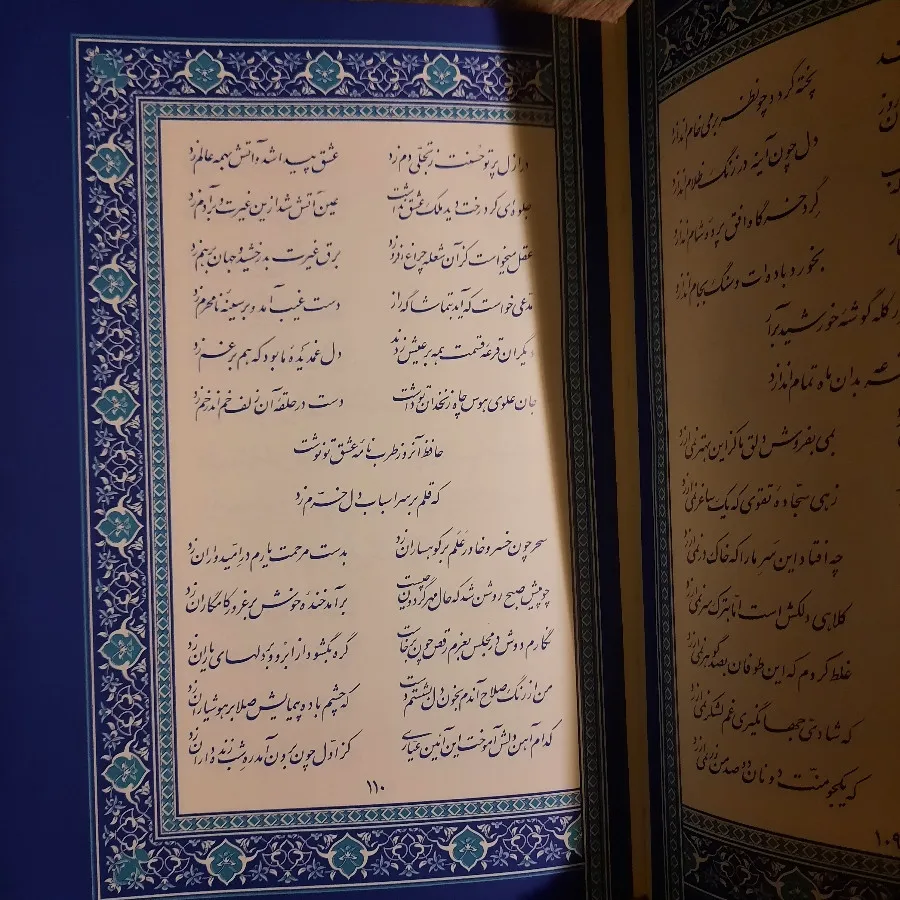 پخته گردد چو نظر بر می خام اندازد
دل چون آینه در زنگ ظلام اندازد
گرد خرگاه افق پرده شام اندازد
بخورد باده‌ات و سنگ بجام اندازد
کله گوشهٔ خورشید برآر
بدان ماه تمام اندازد
بمی بفروش دلق ما کزین بهتر نمی‌ارزد
زهی سجادهٔ تقوی که یک ساغر نمی‌ارزد
چه افتاد این سَرِ ما را که خاک در نمی‌ارزد
کلاهی دلکش است اما بترک سر نمی‌ارزد
غلط کردم که این طوفان بصد گوهر نمی‌ارزد
که شادیّ جهانگیری غم لشکر نمی‌ارزد
که یکجو منّت دونان دو صد من زر نمی‌ارزد
۱۰۹
در ازل پرتو حُسنت ز تجلّی دم زد عشق پیدا شد و آتش بهمه عالم زد
جلوه‌ای کرد رخت دید ملک عشق نداشت عین آتش شد ازین غیرت و بر آدم زد
عقل میخواست کز آن شعله چراغ افروزد برق غیرت بدرخشید و جهان برهم زد
مدّعی خواست که آید بتماشاگه راز دست غیب آمد و بر سینهٔ نامحرم زد
دیگران قرعهٔ قسمت همه بر عیش زدند دل غمدیدهٔ ما بود که هم بر غم زد
جان علوی هوس چاه زنخدان تو داشت دست در حلقهٔ آن زلف خم اندر خم زد
حافظ آنروز طرب نامهٔ عشق تو نوشت
که قلم بر سر اسباب دل خرّم زد
سحر چون خسرو خاور عَلَم بر کوهساران زد بدست مرحمت یارم در امیدواران زد
چو پیش صبح روشن شد که حال مهر گردون چیست برآمد خندهٔ خوش بر غرور کامگاران زد
نگارم دوش در مجلس بعزم رقص چون برخاست گره بگشود از ابرو و بر دلهای یاران زد
من از رنگ صلاح آندم بخون دل بشستم دست که چشم باده پیمایش صلا بر هوشیاران زد
کدام آهن دلش آموخت این آئین عیّاری کز اول چون برون آمد ره شب زنده داران زد
۱۱۰